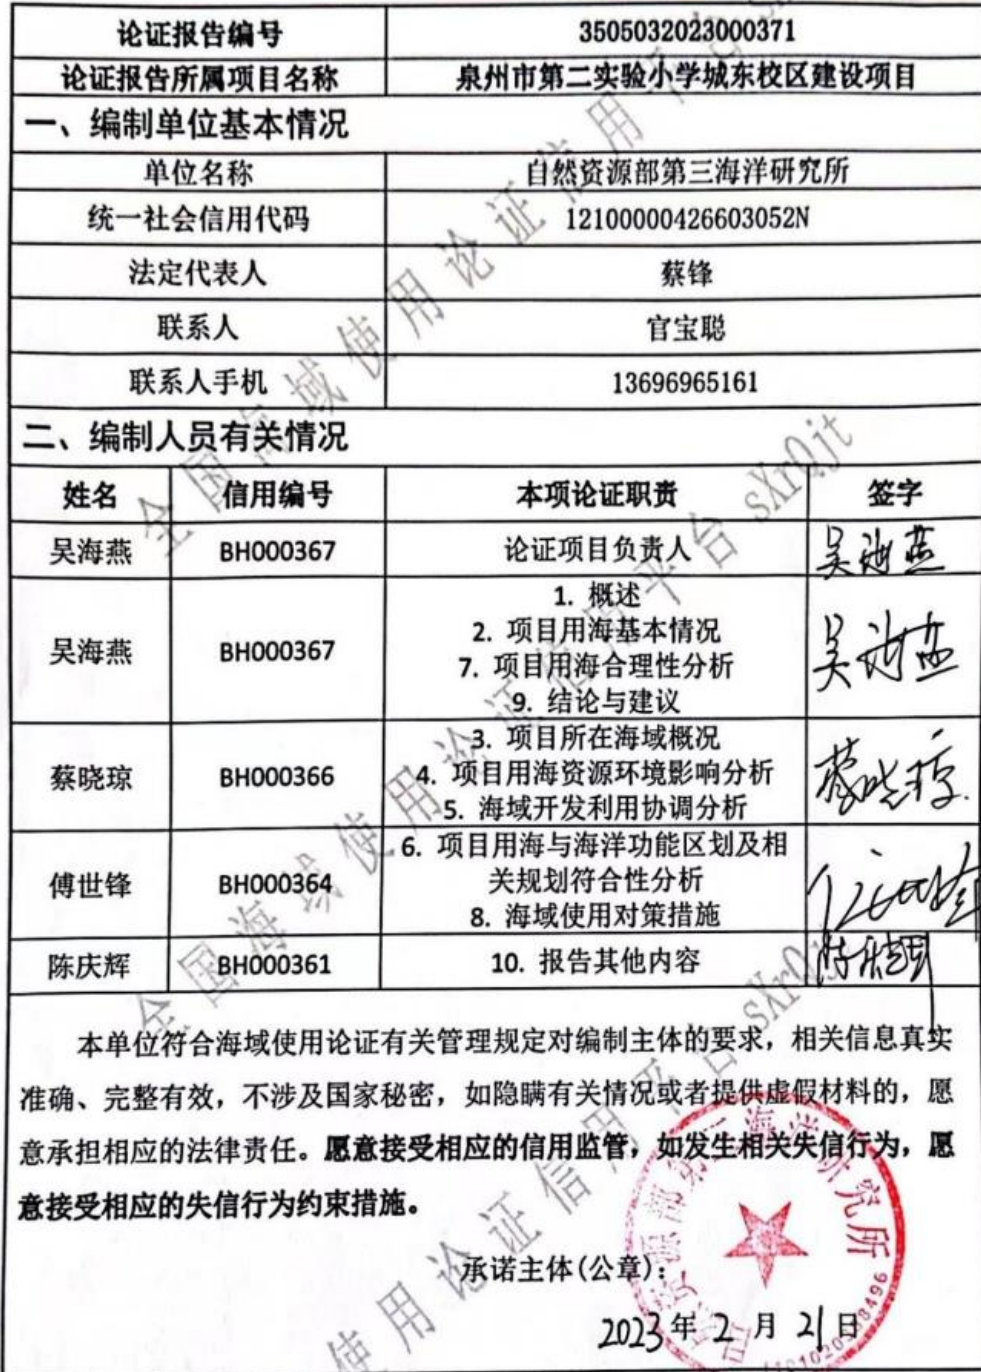 论证报告编号 3505032023000371
论证报告所属项目名称 泉州市第二实验小学城东校区建设项目
一、编制单位基本情况
单位名称 自然资源部第三海洋研究所
统一社会信用代码 12100000426603052N
法定代表人 蔡锋
联系人 官宝聪
联系人手机 13696965161
二、编制人员有关情况
姓名 信用编号 本项论证职责 签字
吴海燕 BH000367 论证项目负责人 吴海燕
吴海燕 BH000367
1. 概述
2. 项目用海基本情况
7. 项目用海合理性分析
9. 结论与建议
吴海燕
蔡晓琼 BH000366
3. 项目所在海域概况
4. 项目用海资源环境影响分析
5. 海域开发利用协调分析
蔡晓琼
傅世锋 BH000364
6. 项目用海与海洋功能区划及相
关规划符合性分析
8. 海域使用对策措施
陈庆辉 BH000361 10. 报告其他内容
本单位符合海域使用论证有关管理规定对编制主体的要求，相关信息真实
准确、完整有效，不涉及国家秘密，如隐瞒有关情况或者提供虚假材料的，愿
意承担相应的法律责任。愿意接受相应的信用监管，如发生相关失信行为，愿
意接受相应的失信行为约束措施。
承诺主体(公章):
2023年2月21日
自然资源部第三海洋研究所
全国海域使用论证信用平台 sXrQjt
全国海域使用论证信用平台 sXrQjt